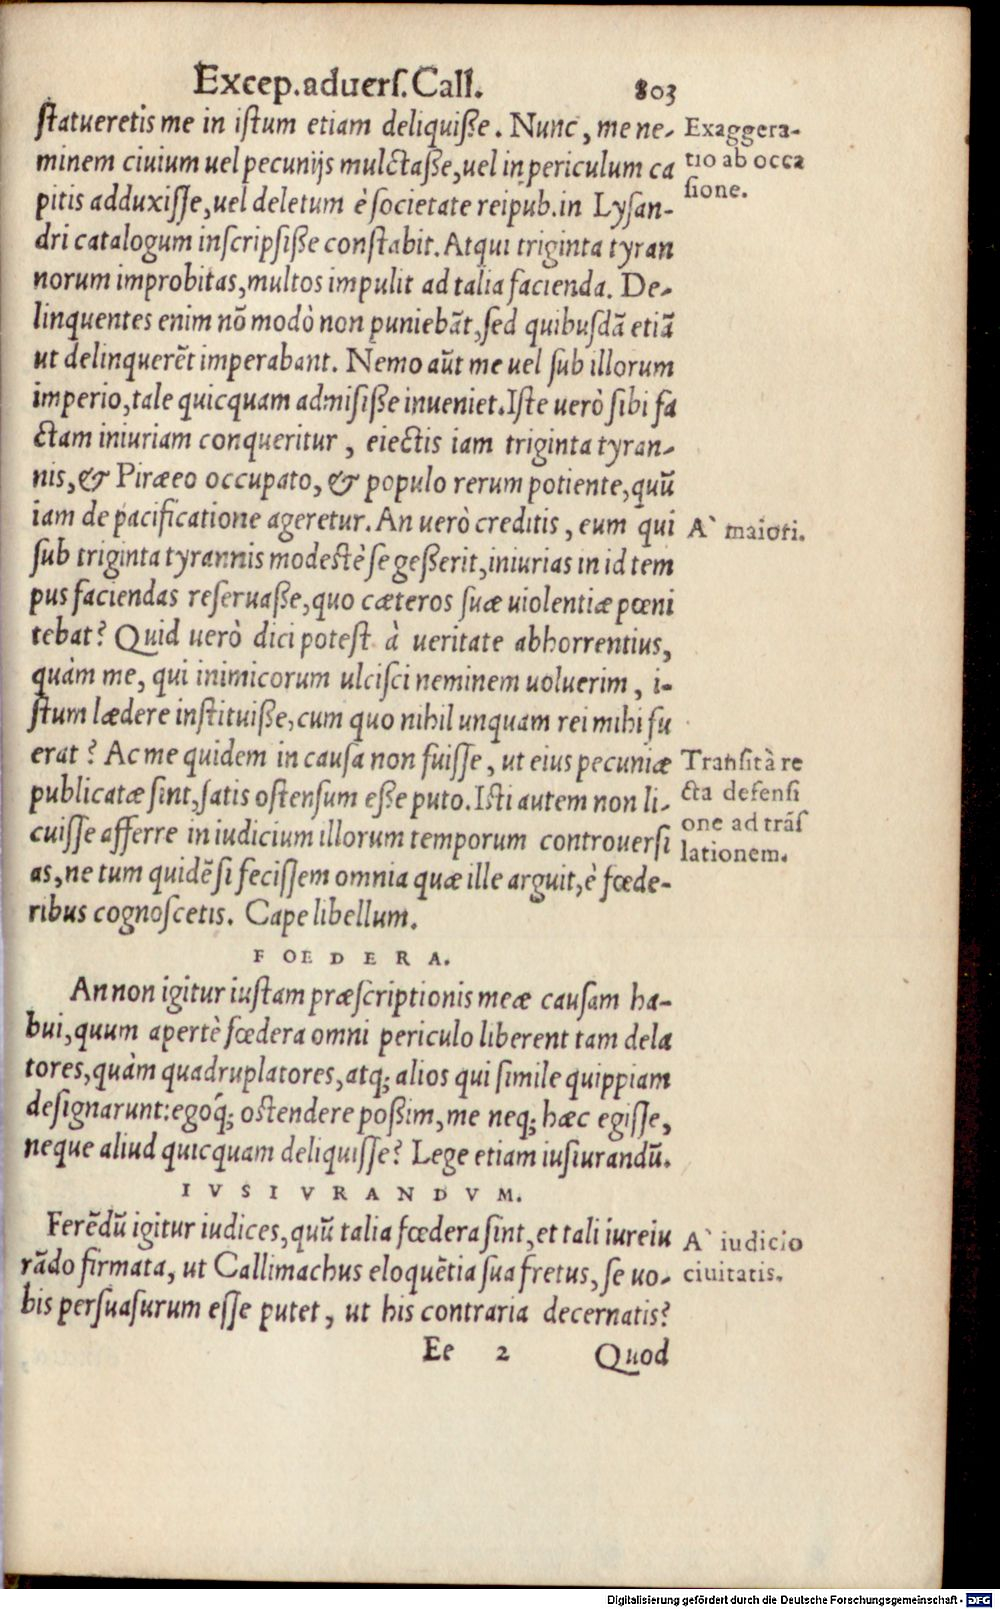 Excep.aduerſ.Call. 803
ſtatueretis me in iſtum etiam deliquiſſe. Nunc, me ne-
minem ciuium uel pecunijs mulctaſſe, uel in periculum ca
pitis adduxiſſe, uel deletum è ſocietate reipub. in Lyſan-
dri catalogum inſcripſiſſe conſtabit. Atqui triginta tyran
norum improbitas, multos impulit ad talia facienda. De-
linquentes enim nō modò non puniebāt, ſed quibuſdā etiā
ut delinquerēt imperabant. Nemo aūt me uel ſub illorum
imperio, tale quicquam admiſiſſe inueniet. Iſte uerò ſibi fa
ctam iniuriam conqueritur, eiectis iam triginta tyran-
nis, & Piræeo occupato, & populo rerum potiente, quū
iam de pacificatione ageretur. An uerò creditis, eum qui
ſub triginta tyrannis modeſtè ſe geſſerit, iniurias in id tem
pus faciendas reſeruaſſe, quo cæteros ſuæ uiolentiæ pœni
tebat? Quid uerò dici poteſt à ueritate abhorrentius,
quàm me, qui inimicorum ulciſci neminem uoluerim, i-
ſtum lædere inſtituiſſe, cum quo nihil unquam rei mihi fu
erat? Ac me quidem in cauſa non fuiſſe, ut eius pecuniæ
publicatæ ſint, ſatis oſtenſum eſſe puto. Iſti autem non li-
cuiſſe afferre in iudicium illorum temporum controuerſi
as, ne tum quidē ſi feciſſem omnia quæ ille arguit, è fœde-
ribus cognoſcetis. Cape libellum.
FOEDERA.
Annon igitur iuſtam præſcriptionis meæ cauſam ha-
bui, quum apertè fœdera omni periculo liberent tam dela
tores, quàm quadruplatores, atq; alios qui ſimile quippiam
deſignarunt: egoq́; oſtendere poſſim, me neq; hæc egiſſe,
neque aliud quicquam deliquiſſe? Lege etiam iuſiurandū.
IVSIVRANDVM.
Ferēdū igitur iudices, quū talia fœdera ſint, et tali iureiu
rādo firmata, ut Callimachus eloquētia ſua fretus, ſe uo-
bis perſuaſurum eſſe putet, ut his contraria decernatis?
Ee 2 Quod
Exaggera-
tio ab occa
ſione.
A` maiori.
Tranſit à re
cta defenſi
one ad trāſ
lationem.
A` iudicio
ciuitatis.
Digitalisierung gefördert durch die Deutsche Forschungsgemeinschaft - DFG